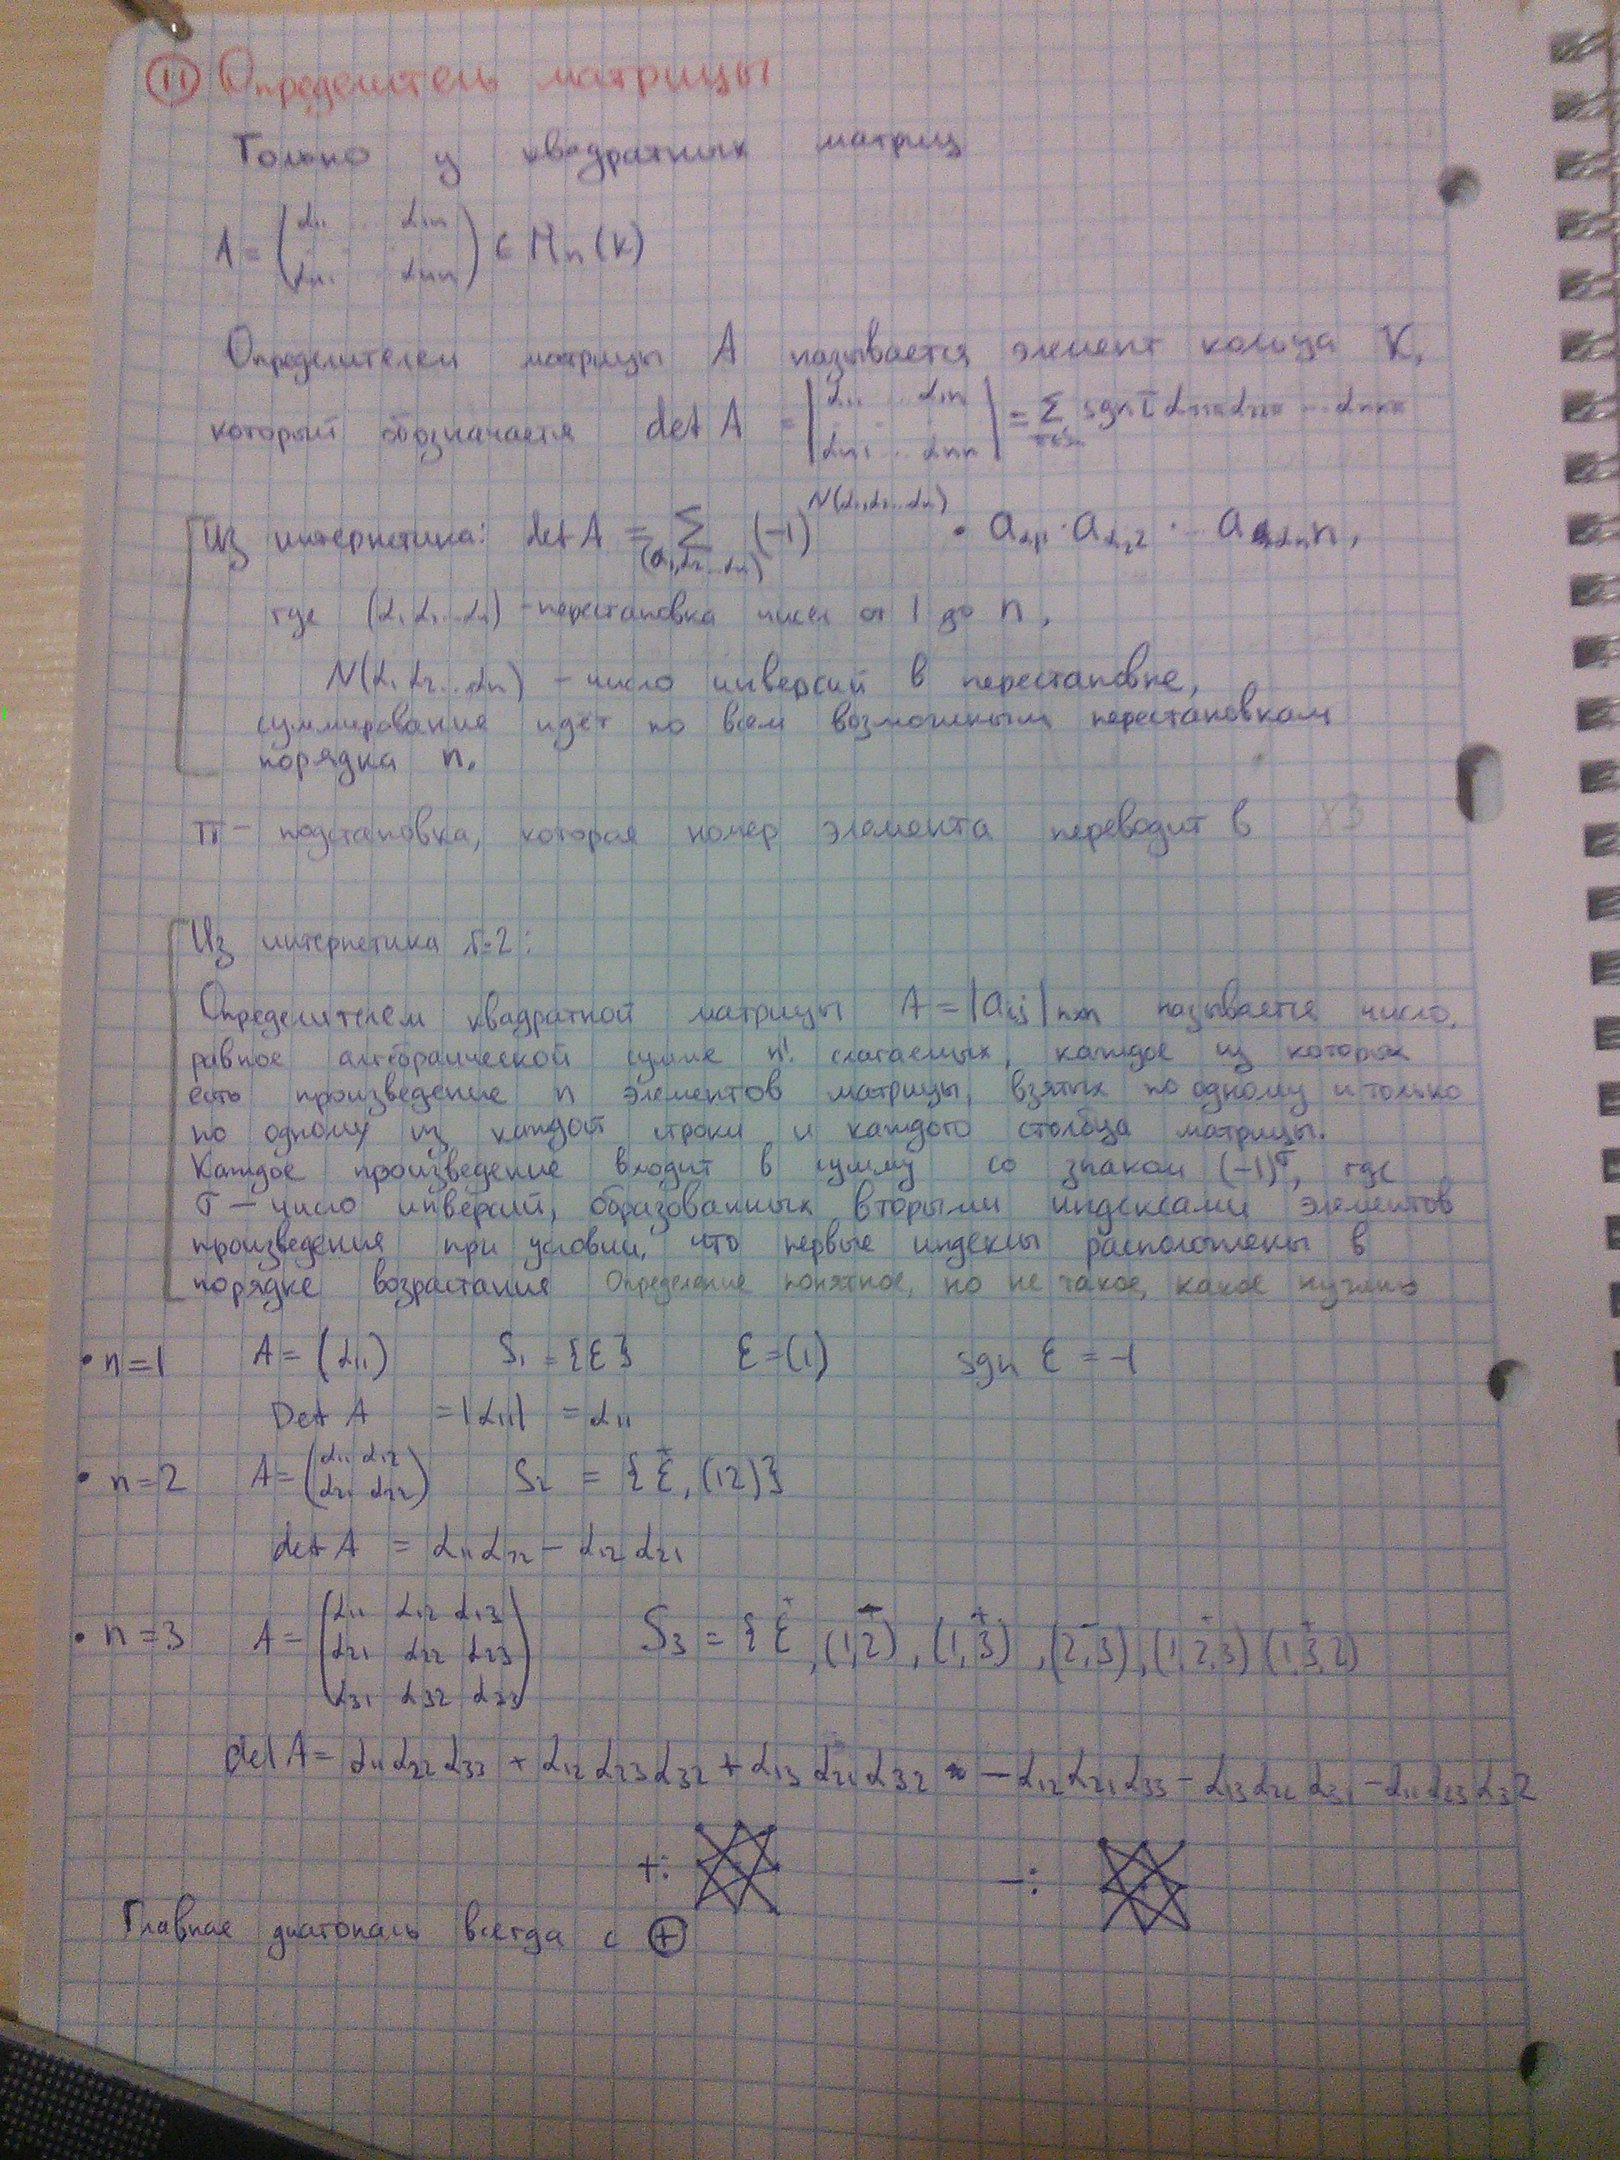 11 Определитель матрицы
Только у квадратных матриц
A = (α₁₁ ... α₁ₙ ... αₙ₁ ... αₙₙ) ∈ Mₙ(K)
Определителем матрицы A называется элемент кольца K,
который обозначается det A = |α₁₁ ... α₁ₙ ... αₙ₁ ... αₙₙ| = Σ_{π∈Sₙ} sgn π α₁₁π α₂₂π ... αₙₙπ
Из интернетика: det A = Σ_{(α₁,α₂...αₙ)} (-1)^{N(α₁,α₂...αₙ)} · a_{α₁1} · a_{α₂2} · ... a_{αₙn},
где (α₁ α₂...αₙ) - перестановка чисел от 1 до n,
N(α₁ α₂...αₙ) - число инверсий в перестановке,
суммирование идёт по всем возможным перестановкам
порядка n.
π - подстановка, которая номер элемента переводит в ХЗ
Из интернетика v.2:
Определителем квадратной матрицы A = |aᵢⱼ|ₙₓₙ называется число,
равное алгебраической сумме n! слагаемых, каждое из которых
есть произведение n элементов матрицы, взятых по одному и только
по одному из каждой строки и каждого столбца матрицы.
Каждое произведение входит в сумму со знаком (-1)^σ, где
σ - число инверсий, образованных вторыми индексами элементов
произведения при условии, что первые индексы расположены в
порядке возрастания Определение понятное, но не такое, какое нужно
• n=1 A = (α₁₁) S₁ = {ε} ε=(1) sgn ε = -1
Det A = |α₁₁| = α₁₁
• n=2 A = (α₁₁ α₁₂ α₂₁ α₂₂) S₂ = {ε⁺, (12)}
det A = α₁₁α₂₂ - α₁₂α₂₁
• n=3 A = (α₁₁ α₁₂ α₁₃ α₂₁ α₂₂ α₂₃ α₃₁ α₃₂ α₃₃) S₃ = {ε, (1,2), (1,3), (2,3), (1,2,3) (1,3,2)
det A = α₁₁α₂₂α₃₃ + α₁₂α₂₃α₃₂ + α₁₃α₂₁α₃₂ - α₁₂α₂₁α₃₃ - α₁₃α₂₂α₃₁ - α₁₁α₂₃α₃₂
+: -:
Главная диагональ всегда с ⊕